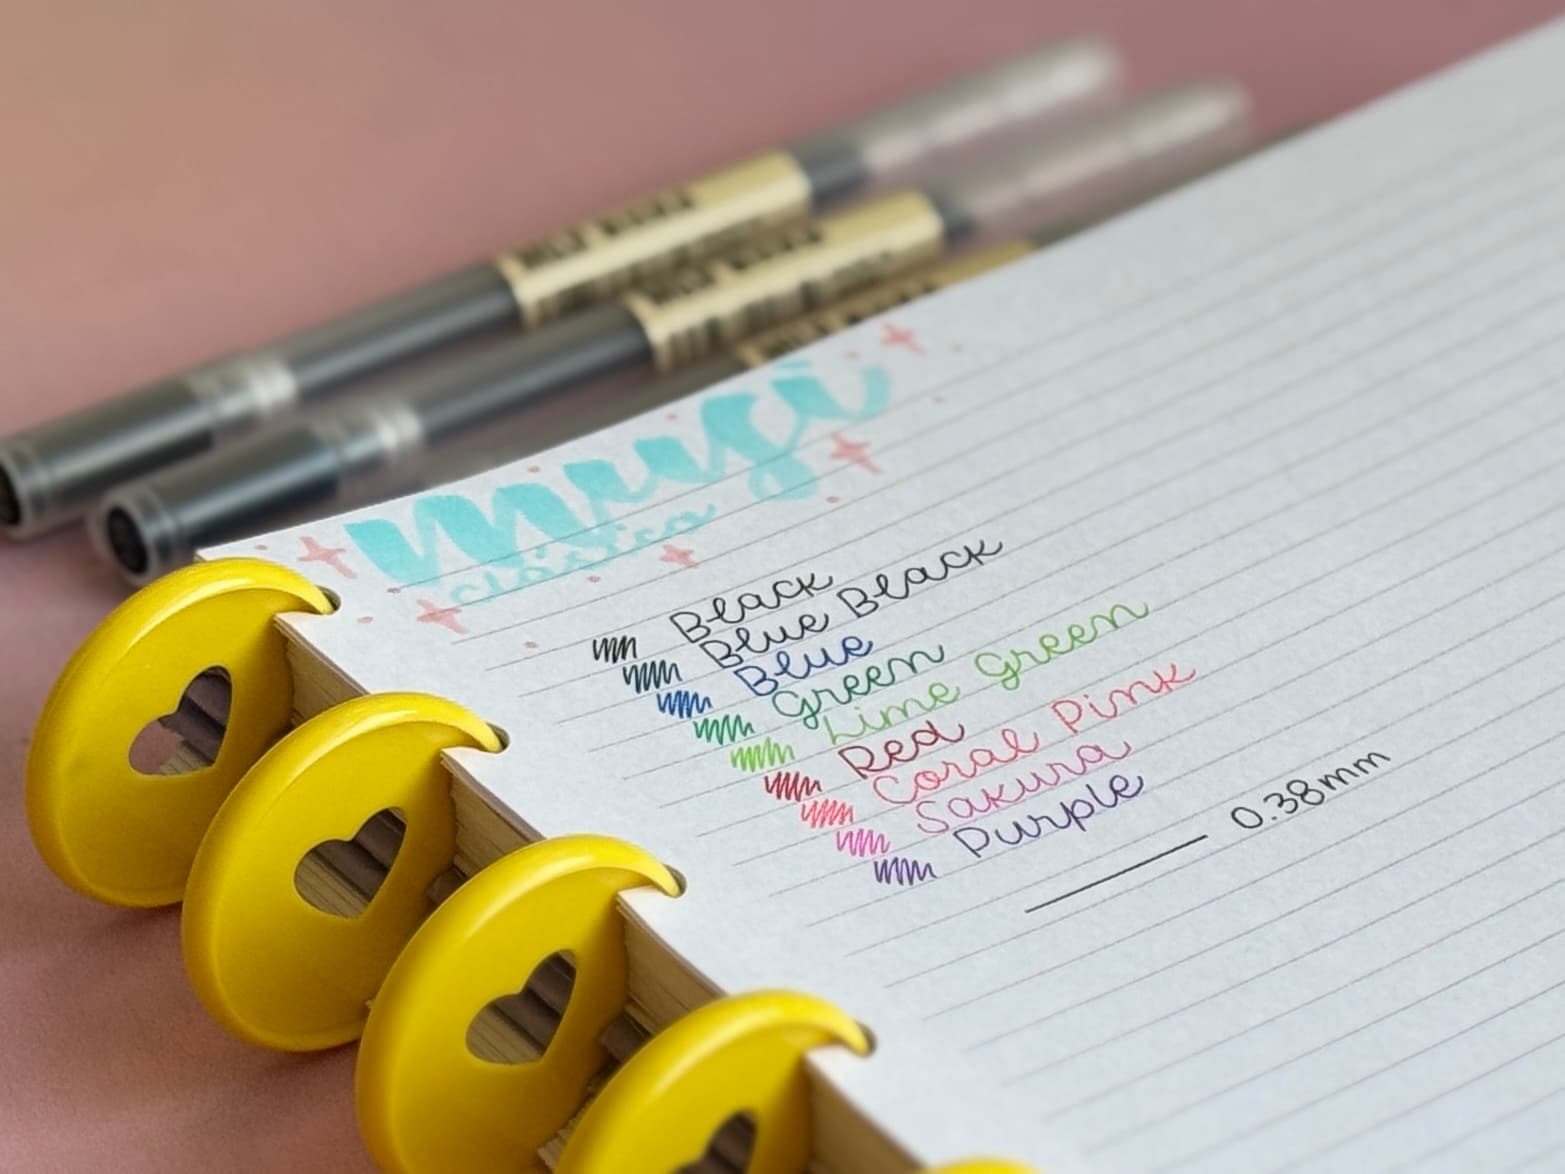 mugi
clássica
Black
Blue Black
Blue
Green
Lime Green
Red
Coral Pink
Sakura
Purple
0.38mm